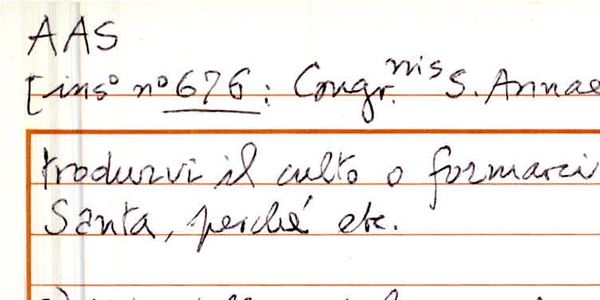 AAS
[insº nº 676: Congr.nis S. Annae
trodurvi il culto o formarci
Santa, perché etc.